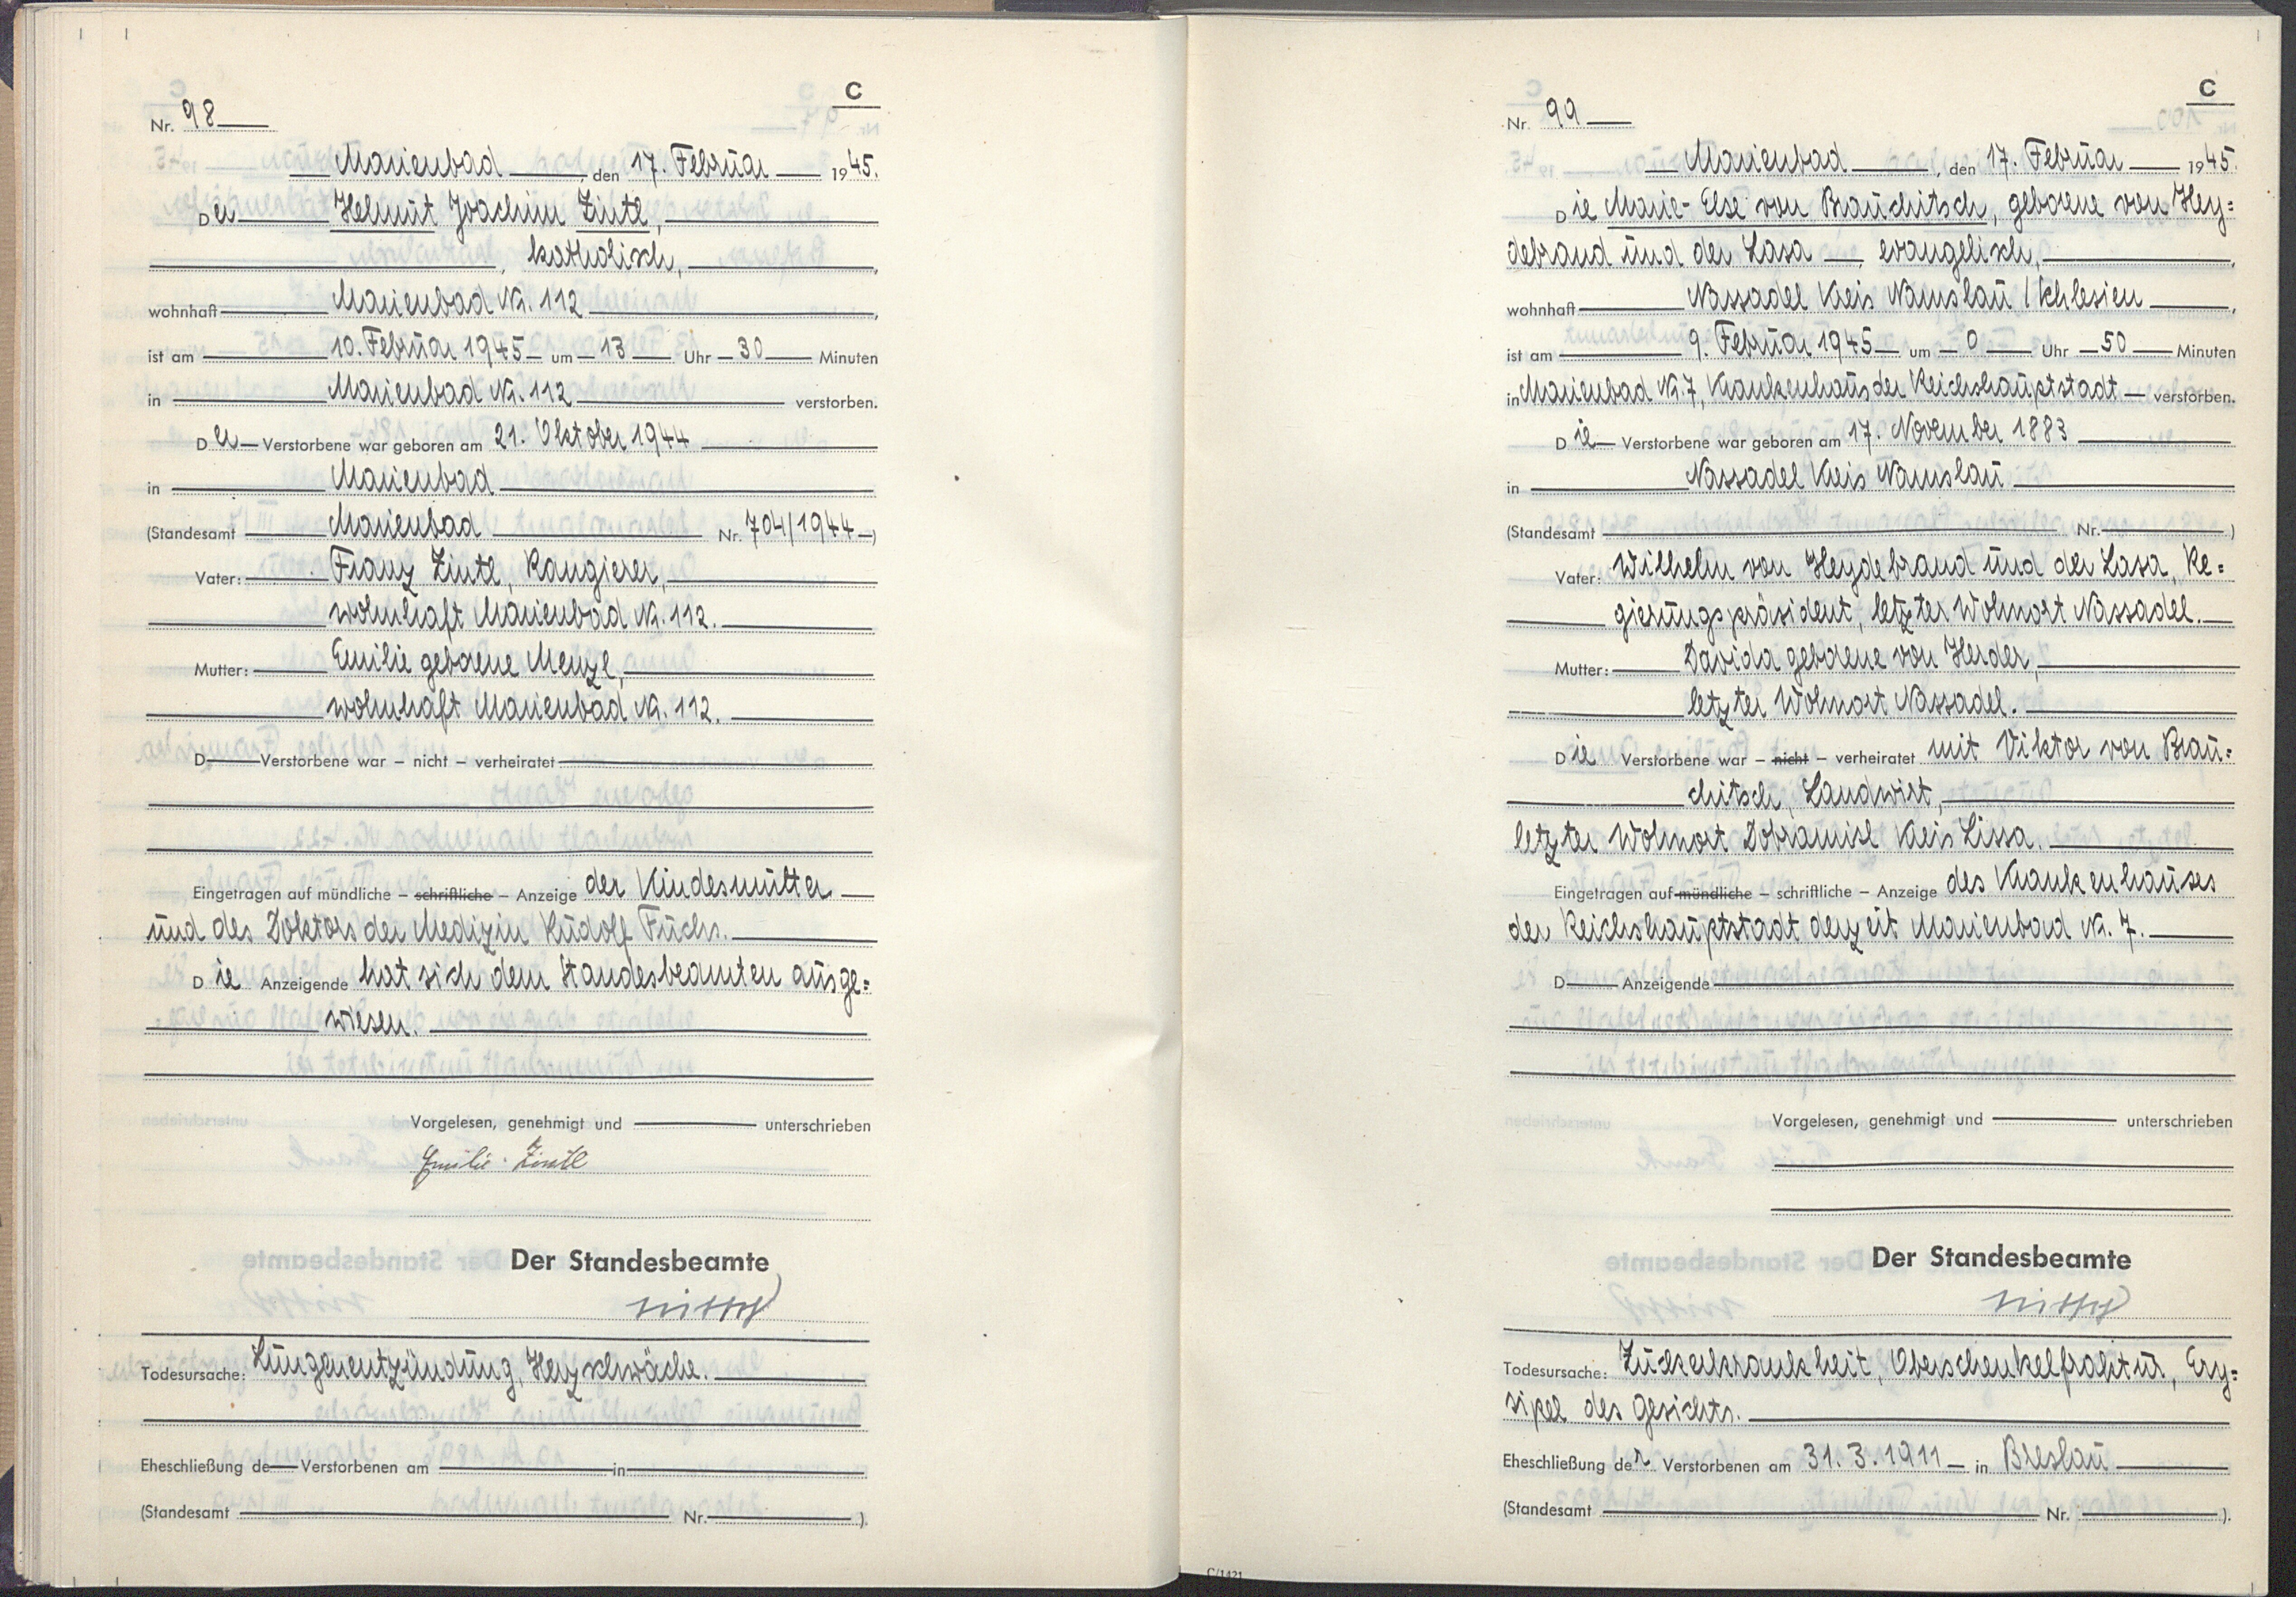 C
Nr. 98
Marienbad, den 17. Februar 1945.
Der Helmut Joachim Zintl,
, katholisch,
wohnhaft Marienbad Nr. 112,
ist am 10. Februar 1945 um 13 Uhr 30 Minuten
in Marienbad Nr. 112 verstorben.
Der Verstorbene war geboren am 21. Oktober 1944
in Marienbad
(Standesamt Marienbad Nr. 704/1944)
Vater: Franz Zintl, Rangierer,
wohnhaft Marienbad Nr. 112.
Mutter: Emilie geborene Menzl,
wohnhaft Marienbad Nr. 112.
D Verstorbene war – nicht – verheiratet
Eingetragen auf mündliche – schriftliche – Anzeige der Kindesmutter
und des Doktors der Medizin Rudolf Fuchs.
Die Anzeigende hat sich dem Standesbeamten ausge=
wiesen.
Vorgelesen, genehmigt und unterschrieben
Emilie Zintl
Der Standesbeamte
Todesursache: Lungenentzündung, Herzschwäche.
Eheschließung de Verstorbenen am in
(Standesamt Nr. ).
C
Nr. 99
Marienbad, den 17. Februar 1945.
Die Marie-Else von Brauchitsch, geborene von Hey=
debrand und der Lasa, evangelisch,
wohnhaft Nassadel Kreis Namslau / Schlesien,
ist am 9. Februar 1945 um 0 Uhr 50 Minuten
in Marienbad Nr. 7, Krankenhaus der Reichshauptstadt verstorben.
Die Verstorbene war geboren am 17. November 1883
in Nassadel Kreis Namslau
(Standesamt Nr. )
Vater: Wilhelm von Heydebrand und der Lasa, Re=
gierungspräsident, letzter Wohnort Nassadel.
Mutter: Davida geborene von Herder,
letzter Wohnort Nassadel.
Die Verstorbene war – nicht – verheiratet mit Viktor von Brau=
chitsch, Landwirt,
letzter Wohnort Dobramisl Kreis Lissa.
Eingetragen auf mündliche – schriftliche – Anzeige des Krankenhauses
der Reichshauptstadt derzeit Marienbad Nr. 7.
D Anzeigende
Vorgelesen, genehmigt und unterschrieben
Der Standesbeamte
Todesursache: Zuckerkrankheit, Oberschenkelfraktur, Ery=
sipel des Gesichts.
Eheschließung der Verstorbenen am 31.3.1911 in Breslau
(Standesamt Nr. ).
C/1421